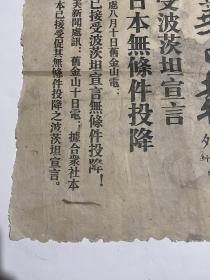 受波茨坦宣言
日本無條件投降
處八月十日舊金山電：
已接受波茨坦宣言無條件投降！
美新聞處訊：舊金山十日電：據合衆社本
本已接受促其無條件投降之波茨坦宣言。